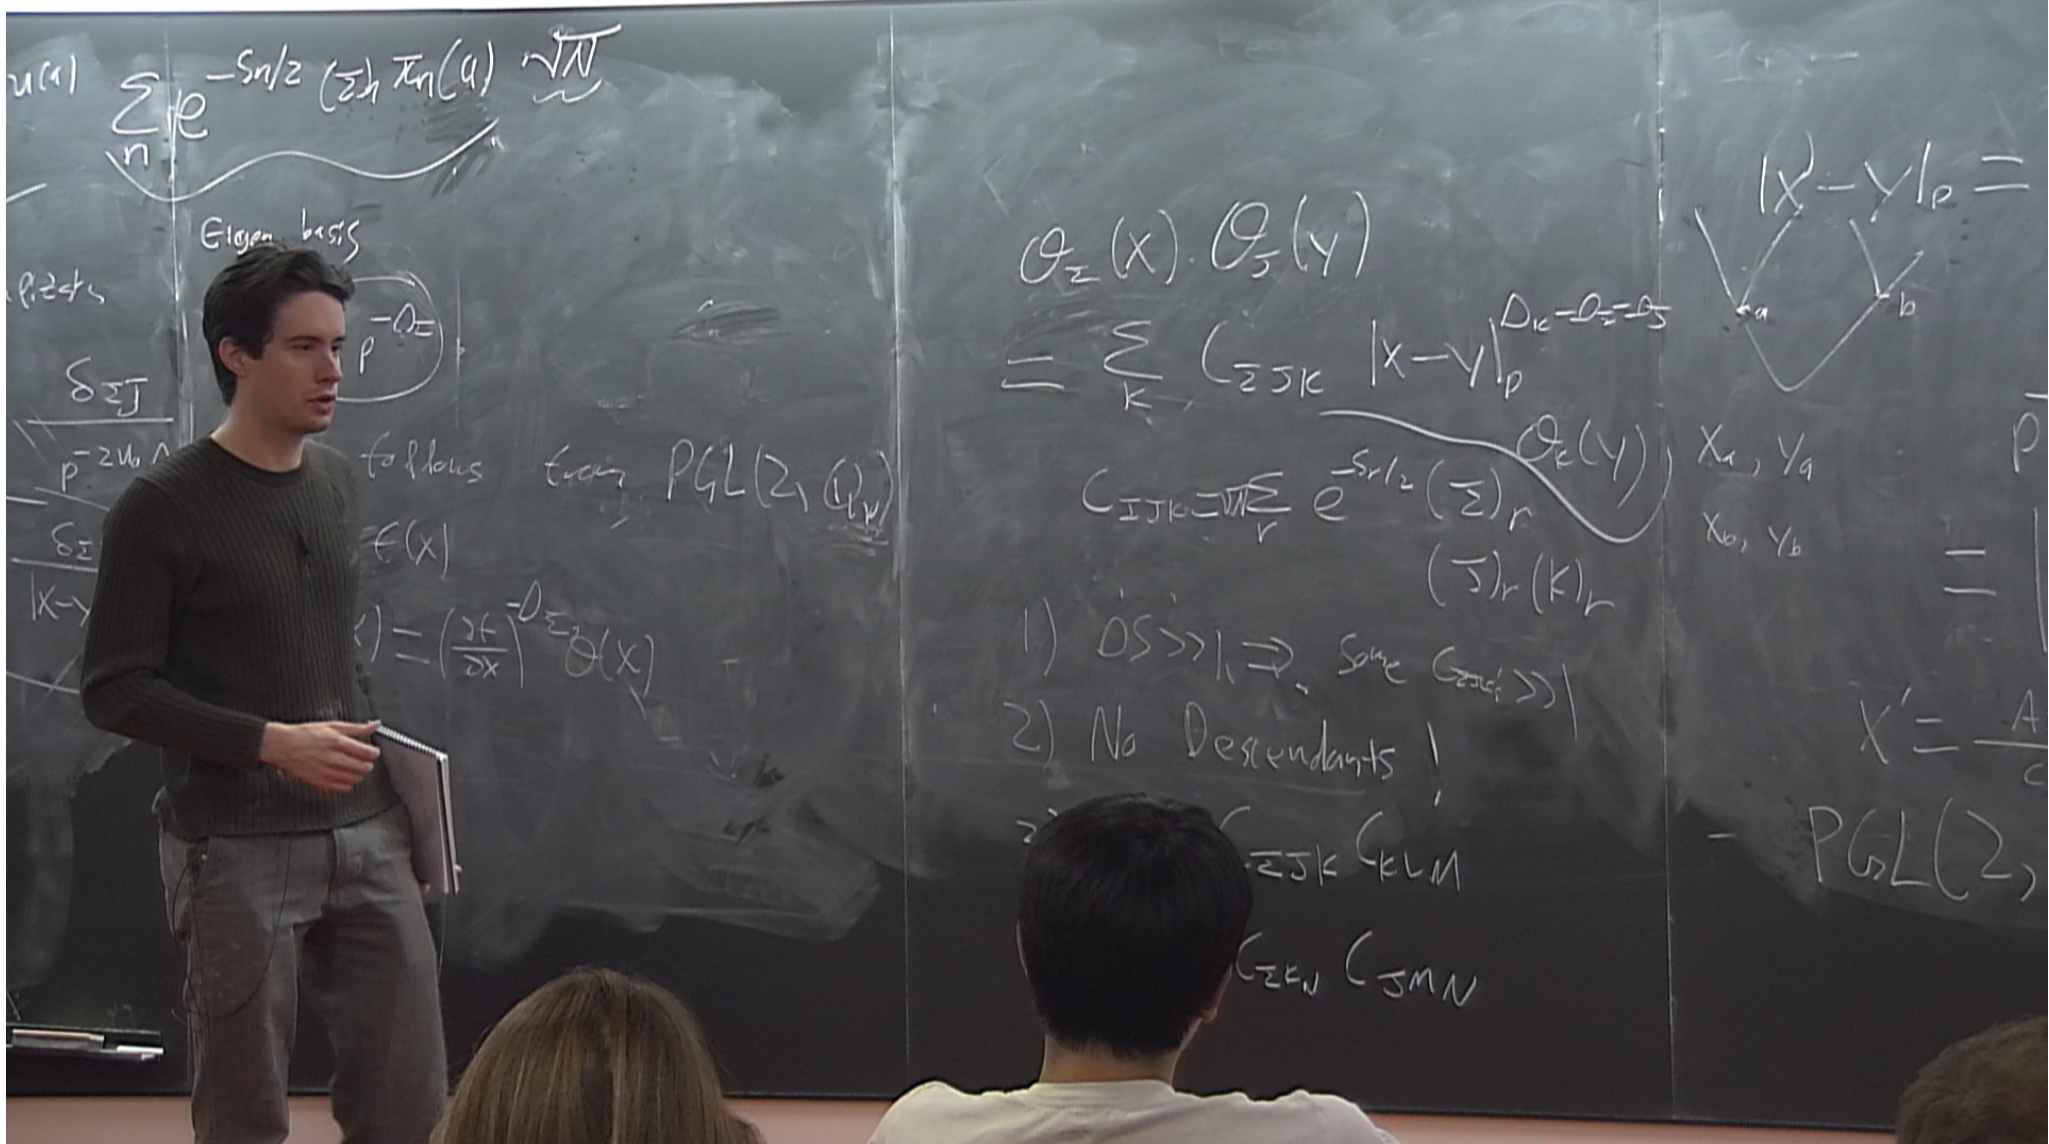 u(a)
∑_n e^{-S_n/2} (I)_n π_n(a) √N
Eigen basis
p^{-Δ_I}
δ_{IJ}
p^{-2u_0
follows from PGL(2, Q_p)
f(x)
δ_I
|x-y
) = (∂f/∂x)^{-Δ_I} O(x)
O_I(x) · O_J(y)
= ∑_K C_{IJK} |x-y|_p^{Δ_K-Δ_I-Δ_J}
O_K(y)
C_{IJK} = √N ∑_r e^{-S_r/2} (I)_r
(J)_r (K)_r
1) DS >> 1, ⇒ some C_{IJK} >> 1
2) No Descendants!
C_{IJK} C_{KLM}
C_{IKN} C_{JMN}
|x-y|_p =
a b
x_a, y_a
x_b, y_b
p^-
= |
x' = A
c
- PGL(2,